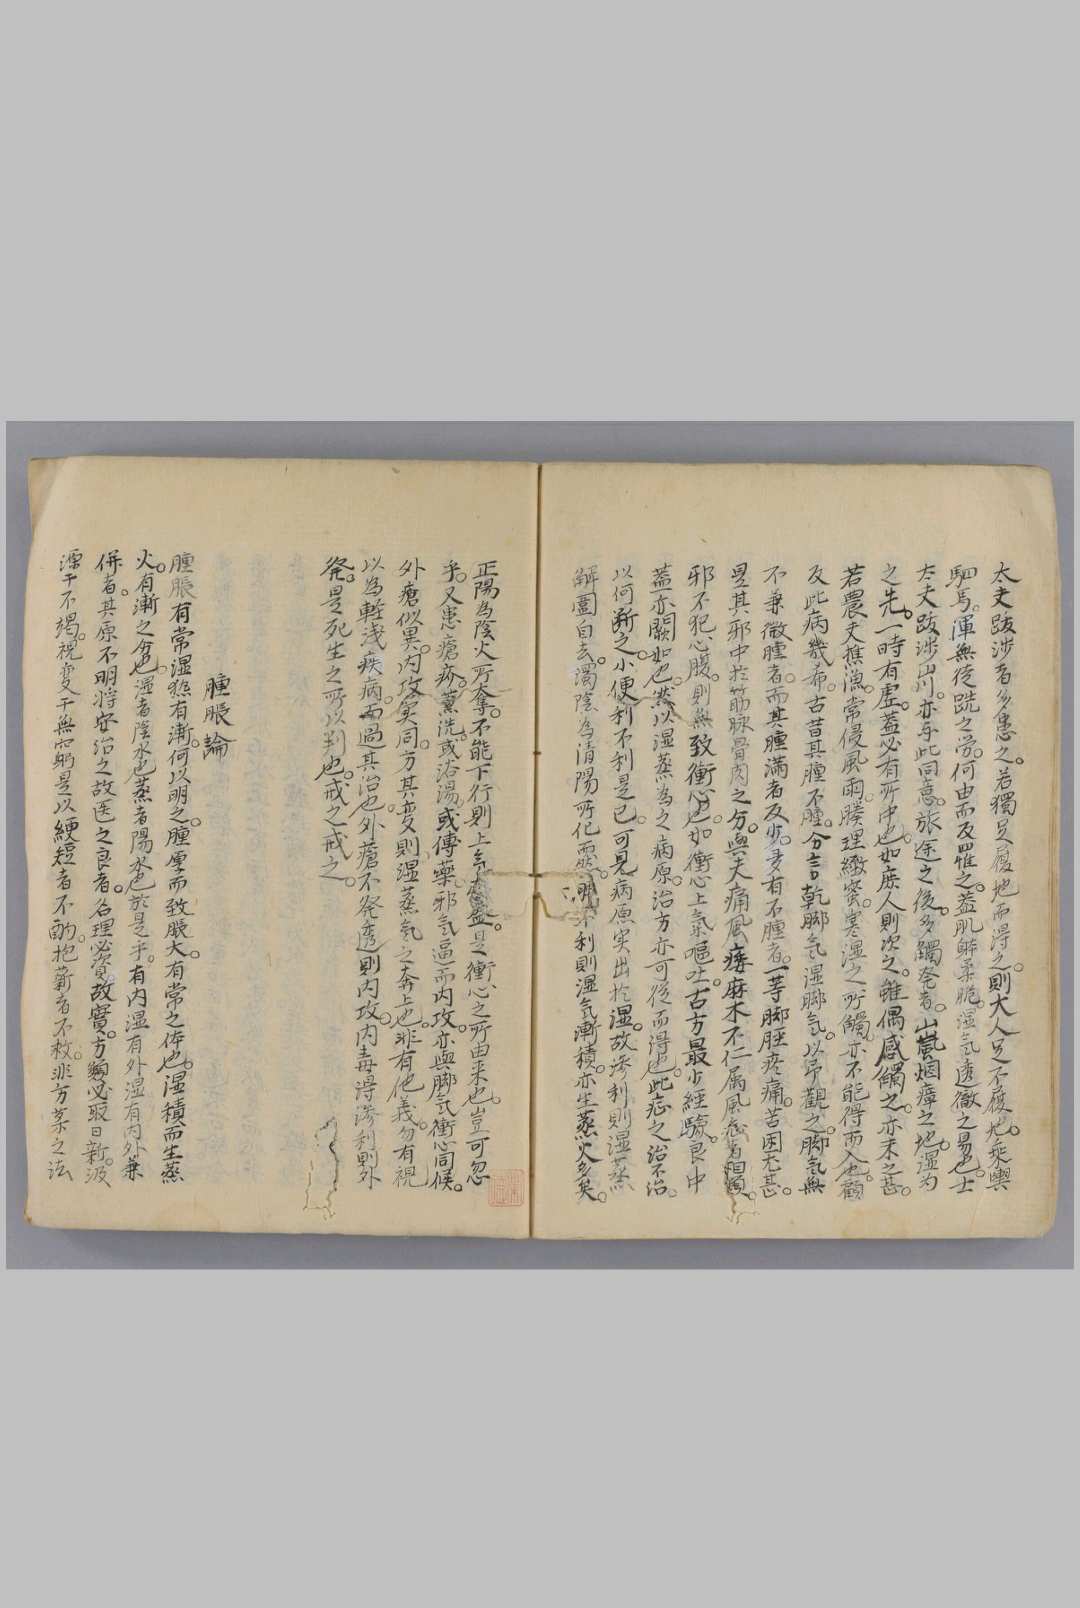 大夫跋渉者多患之。若獨足履地而得之。則大人足不履地。乘輿
駟馬。渾無徒跣之労。何由而及罹之。蓋肌解柔脆。湿気透徹之易也。士
大夫跋渉山川。亦与此同意。旅途之後。多觸発者。山嵐烟瘴之地。湿為
之先。一時有虚。蓋必有所中也。如庶人則次之。雖偶感觸之。亦未之甚。
若農夫樵漁。常侵風雨。腠理緻蜜。寒湿之所觸。亦不能得而入也。顧
及此病幾希。古昔其腫不腫。分言乾脚気湿脚気。以予觀之。脚気無
不兼微腫者。而其腫満者反少。多有不腫者。一等脚脛疼痛。苦困尤甚。
是其邪中於筋脉骨肉之分。與夫痛風痿麻木不仁属風者自
邪不犯心腹。則無致衝心也。如衝心上氣嘔吐。古方最少經驗。良中
蓋亦闕如也。然以湿蒸為之病原。治方亦可從而得也。此症之治不治。
以何断之。小便利不利是已。可見病原実出於湿。故滲利則湿蒸
解圍自去。濁陰為清陽所化而然。利則湿気漸積。亦生蒸火多矣。
正陽為陰火所奪。不能下行。則上気是衝心之所由来也。豈可忽
乎。又患瘡疥。薫洗或浴湯。或傅藥。邪気逼而内攻。亦與脚気衝心同候。
外瘡似異。内攻実同。方其変則湿蒸気之奔上也。非有他義。勿有視
以為輕淺疾病。而過其治也。外瘡不発透則内攻。内毒得滲利則外
発。是死生之所以判也。戒之戒之。
腫脹論
腫脹有常湿。熱有漸。何以明之。腫厚而致脹大。有常之体也。湿積而生蒸
火。有漸之含也。湿者陰水也。蒸者陽水也。於是乎。有内湿有外湿有内外兼
併者。其原不明。將安治之。故医之良者。名理必實。故實。方必取日新。汲
深干不竭。視変干無窮。是以綆短者不酌。抱薪者不救。非方薬之法